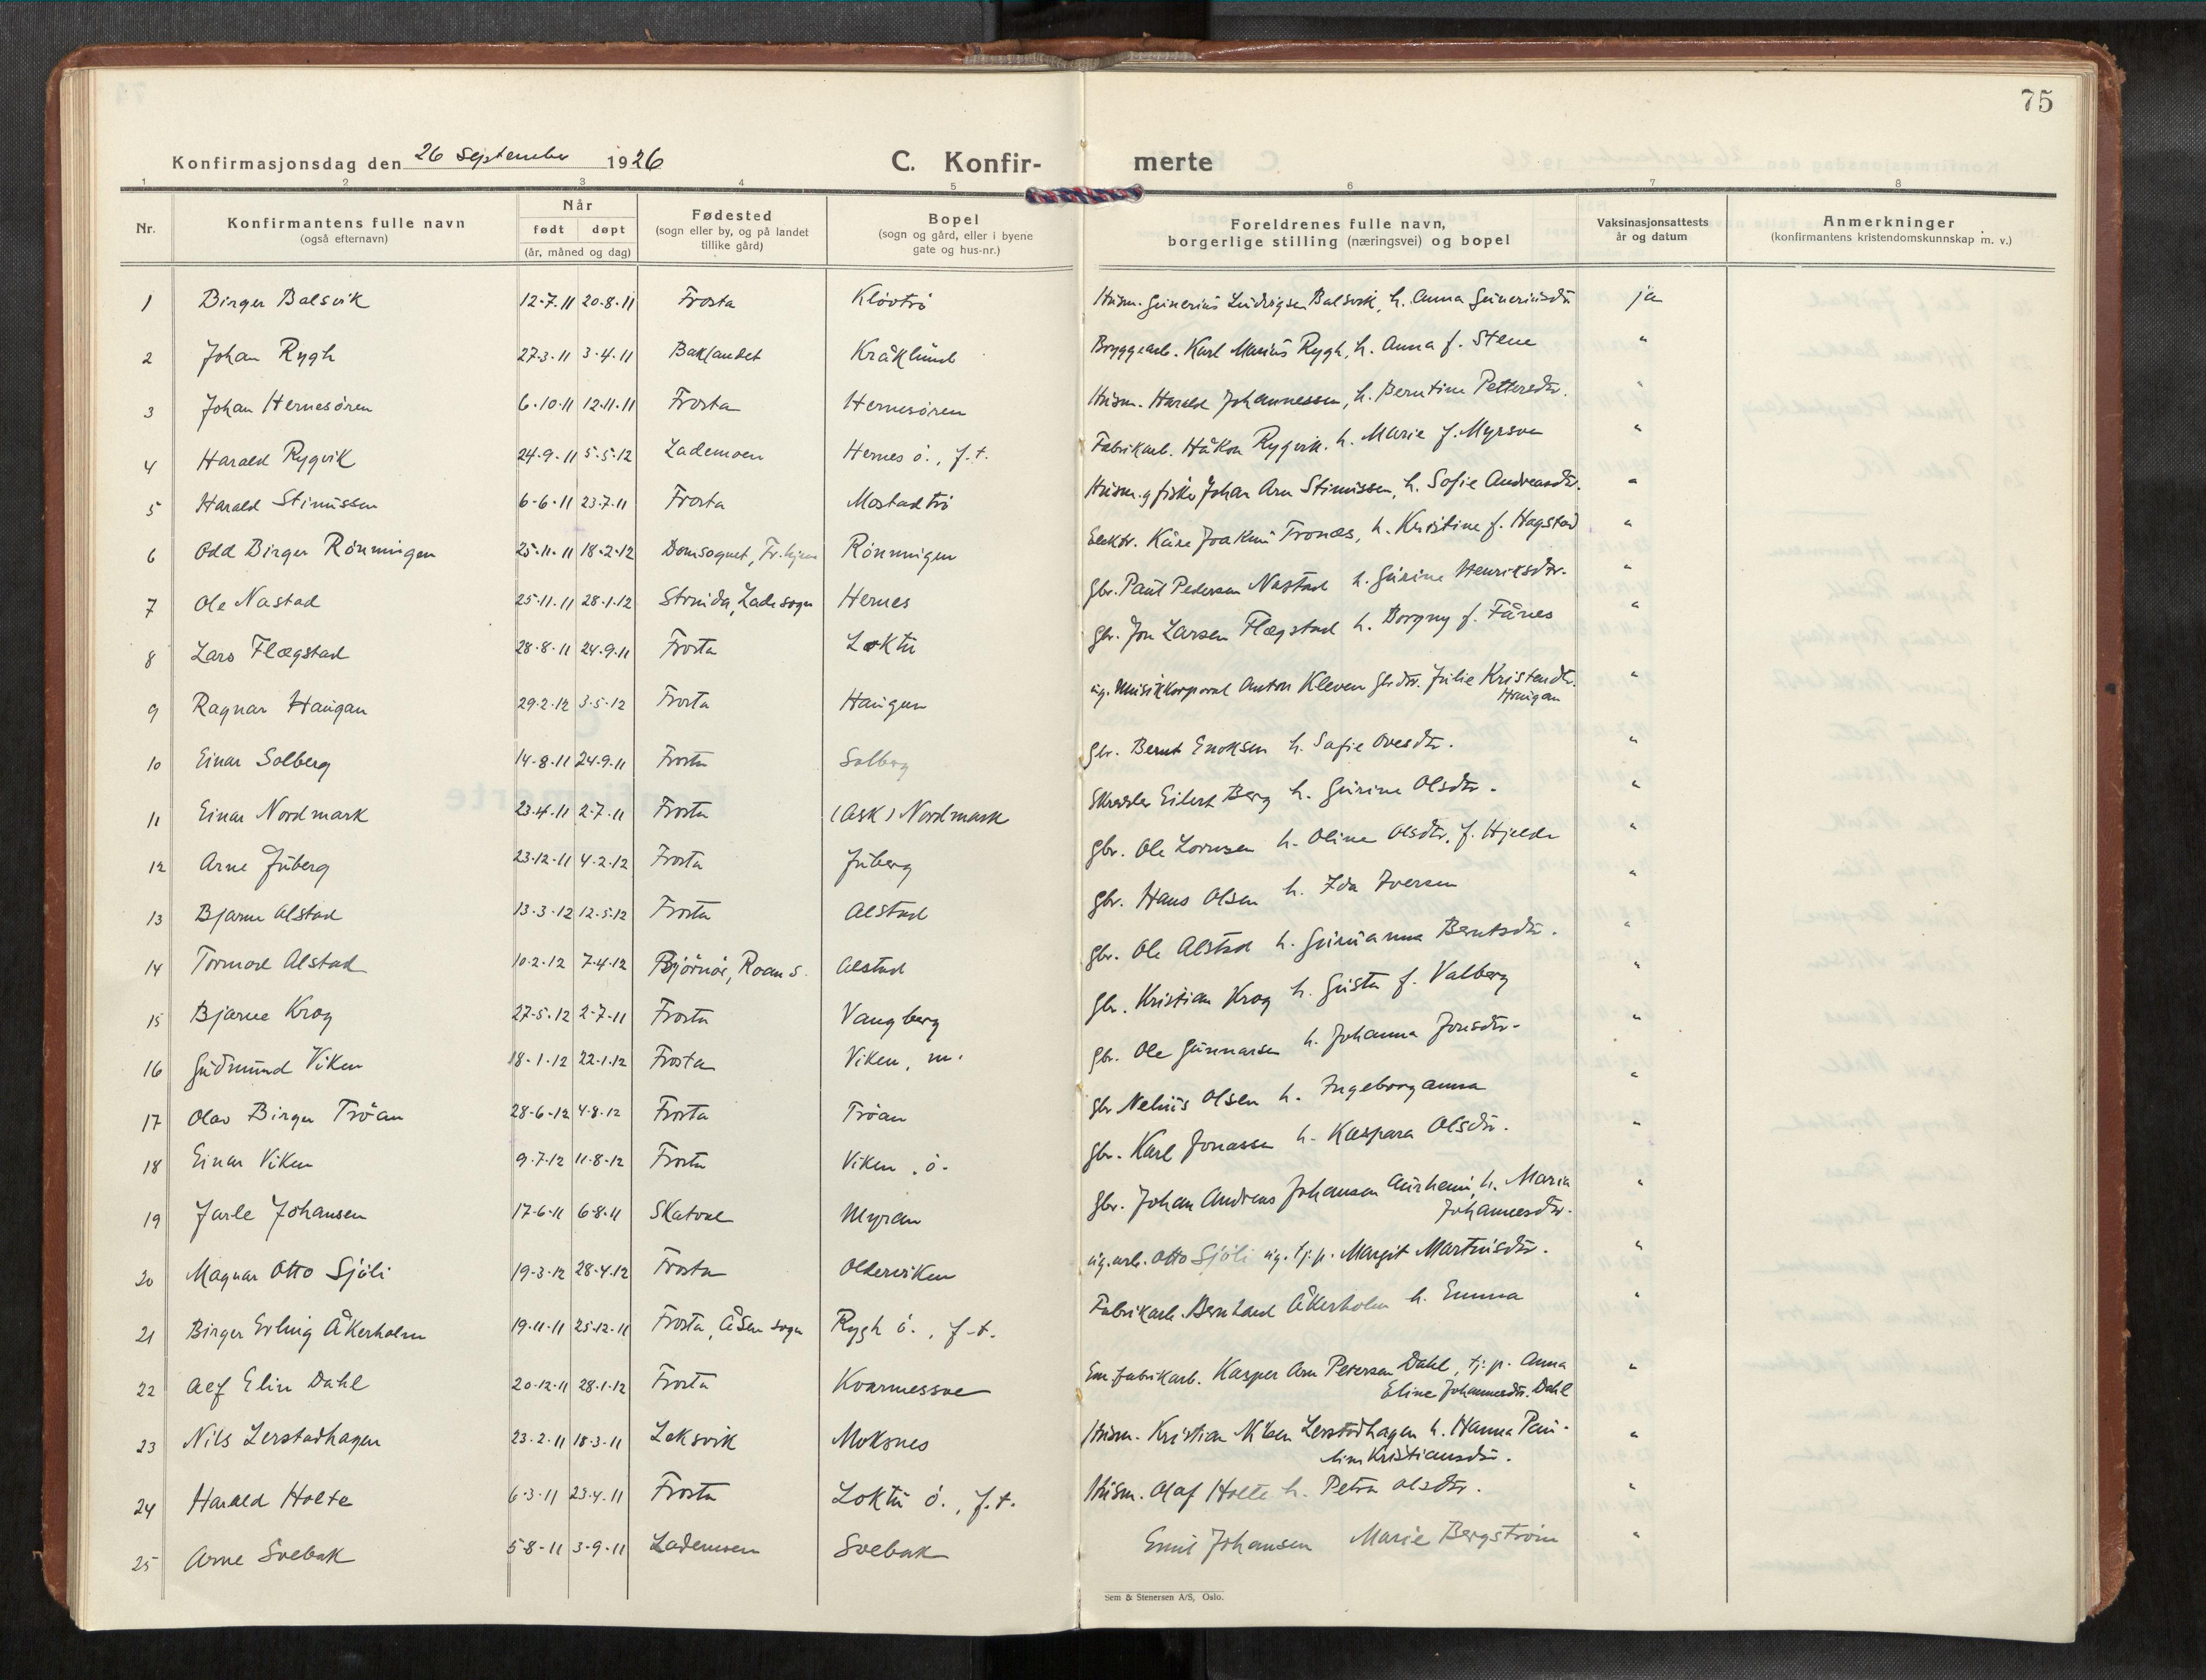 75
Konfirmasjonsdag den 26 September 1926
C. Konfir- merte
1 2 3 4 5 6 7 8
Nr. Konfirmantens fulle navn (også efternavn) Når født døpt (år, måned og dag) Fødested (sogn eller by, og på landet tillike gård) Bopel (sogn og gård, eller i byene gate og hus-nr.) Foreldrenes fulle navn, borgerlige stilling (næringsvei) og bopel Vaksinasjonsattests år og datum Anmerkninger (konfirmantens kristendomskunnskap m. v.)
1 Birger Balsvik 12-7-11 20-8-11 Frosta Klövtrö Husm. Gunerius Ludvigsen Balsvik, h. Anna Guneriusdtr ja
2 Johan Rygh 27-3-11 3-4-11 Baklandet Kråklund Bryggearb. Karl Marius Rygh, h. Anna f. Stene "
3 Johan Hernesören 6-10-11 12-11-11 Frosta Hernesören Husm. Harald Johannessen, h. Berntine Pettersdtr. "
4 Harald Rygvik 24-9-11 5-5-12 Lademoen Hernes ö., f.t. Fabrikarb. Håkon Rygvik. h. Marie f. Myrsve "
5 Harald Stinussen 6-6-11 23-7-11 Frosta Mostadtrö Husm. g fisker Johan Arn Stinussen, h. Sofie Andreasdtr. "
6 Odd Birger Rönningen 25-11-11 18-2-12 Domsognet, Tr.hjem Rönningen Elektr. Kåre Joakim Tronæs, h. Kristine f. Hagstad "
7 Ole Nastad 25-11-11 28-1-12 Strinda, Lade sogn Hernes gbr. Paul Pedersen Nastad h. Gurine Henriksdtr. "
8 Lars Flægstad 28-8-11 24-9-11 Frosta Loktu gbr. Jon Larsen Flægstad h. Borgny f. Fånes "
9 Ragnar Haugan 29-2-12 3-5-12 Frosta Haugan ug. Musikkorporal Anton Kleven gbrdtr. Julie Kristendtr. "
Haugan
10 Einar Solberg 14-8-11 24-9-11 Frosta Solberg gbr. Bernt Enoksen h. Sofie Ovesdtr. "
11 Einar Nordmark 23-4-11 2-7-11 Frosta (Ask) Nordmark Skredder Eilert Berg h. Gurine Olsdtr. "
12 Arne Juberg 23-12-11 4-2-12 Frosta Juberg gbr. Ole Lornsen h. Oline Olsdtr. f. Hjelde "
13 Bjarne Alstad 13-3-12 12-5-12 Frosta Alstad gbr. Hans Olsen h. Ida Iversen "
14 Tormod Alstad 10-2-12 7-4-12 Björnör, Roan s. Alstad gbr. Ole Alstad h. Gurianna Berntsdtr. "
15 Bjarne Krog 27-5-12 2-7-11 Frosta Vangberg gbr. Kristian Krog h. Gusta f. Valberg "
16 Gudmund Viken 18-1-12 22-1-12 Frosta Viken, m. gbr. Ole Gunnarsen h. Johanna Jonsdtr. "
17 Olav Birger Tröan 28-6-12 4-8-12 Frosta Tröan gbr Nelius Olsen h. Ingeborganna "
18 Einar Viken 9-7-12 11-8-12 Frosta Viken, ö. gbr. Karl Jonassen h. Kaspara Olsdtr. "
19 Jarle Johansen 17-6-11 6-8-11 Skatval Myran gbr. Johan Andreas Johansen Aurheim, h. Maria "
Johannesdtr.
20 Magnar Otto Sjöli 19-3-12 28-4-12 Frosta Olderviken ug. arb. Otto Sjöli ug. tj.p. Margit Martinsdtr. "
21 Birger Erling Åkerholm 19-11-11 25-12-11 Frosta, Åsen sogn Rygh ö., f.t. Fabrikarb. Bernhard Åkerholm h. Emma "
22 Alf Elin Dahl 20-12-11 28-1-12 Frosta Kvarmessve Em fabrikarb. Kasper Arn Petersen Dahl, tj. p. Anna "
Eline Johannesdtr. Dahl
23 Nils Lerstadhagen 23-2-11 18-3-11 Leksvik Moksnes Husm. Kristian Nilsen Lerstadhagen h. Hanna Pau- "
line Kristiansdtr.
24 Harald Holte 6-3-11 23-4-11 Frosta Loktu ö., f.t. Husm. Olaf Holte h. Petra Olsdtr. "
25 Arne Svebak 5-8-11 3-9-11 Lademoen Svebak Emil Johansen Marie Bergström "
Sem & Stenersen A/S, Oslo.